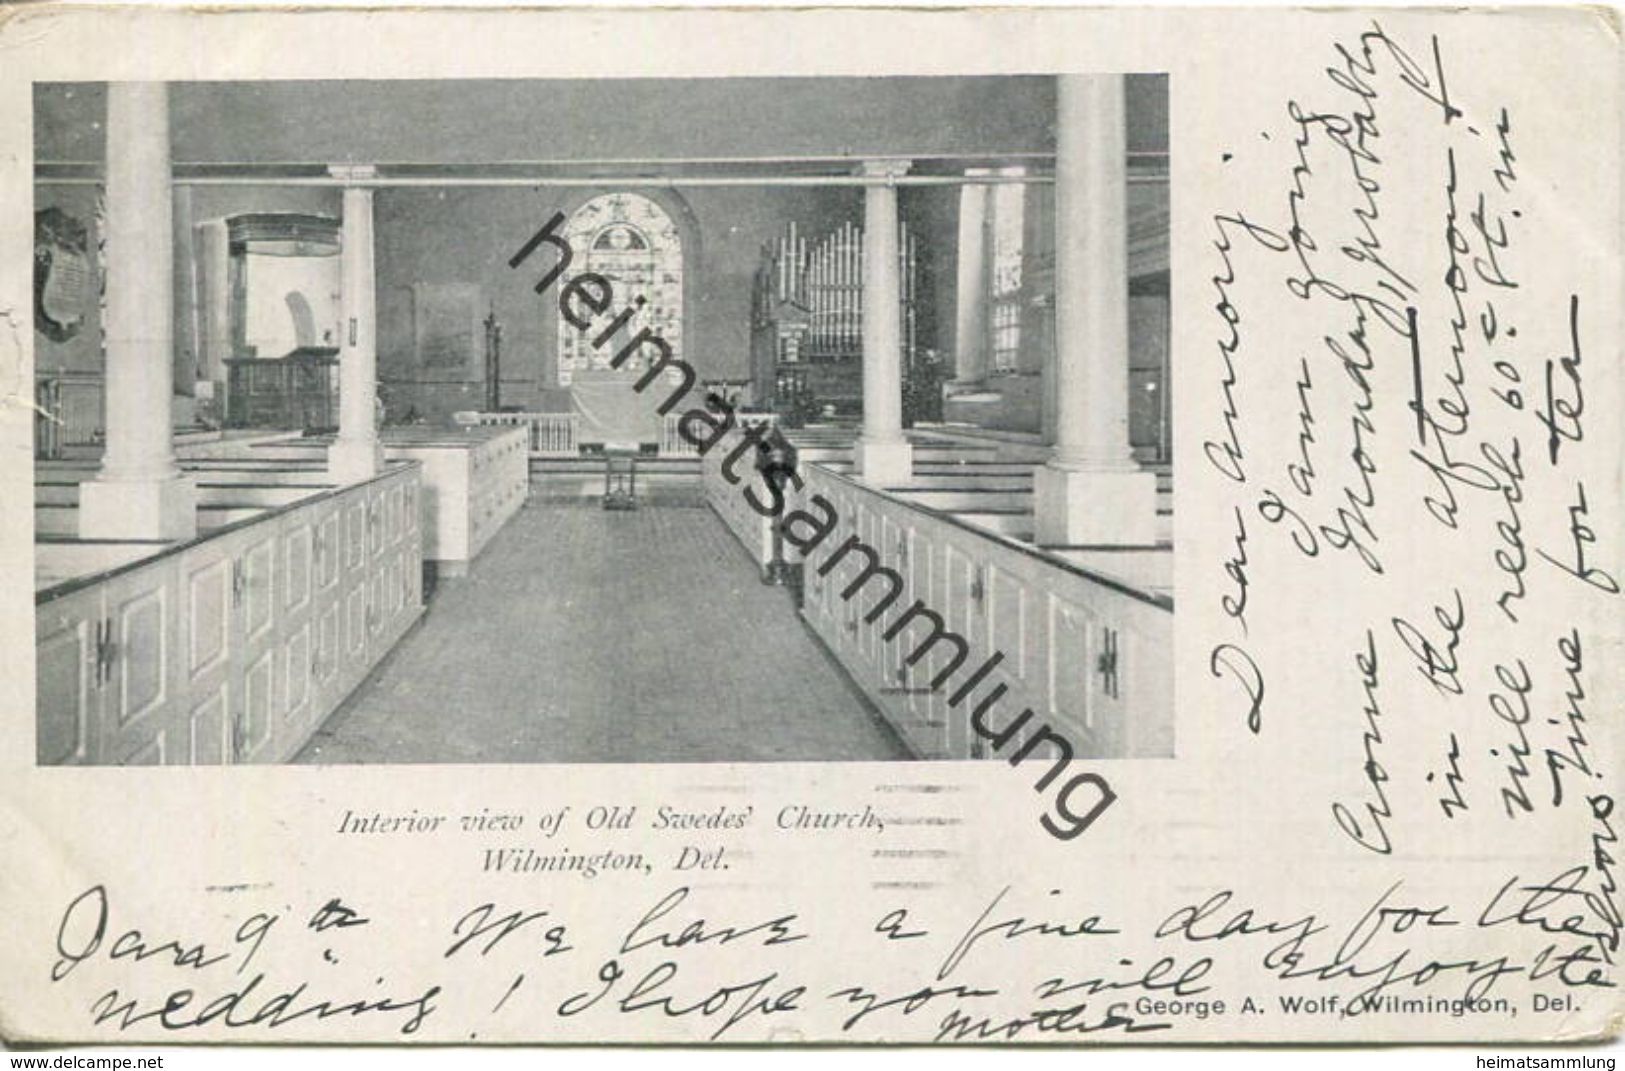 Interior view of Old Swedes' Church,
Wilmington, Del.
Dear Amory;
I am going
home Monday, probably
in the afternoon, &
will reach 60th St. in
time for tea
Jan 9th. We have a fine day for the
wedding! I hope you will enjoy the
shoes.
Mother
George A. Wolf, Wilmington, Del.
heimatsammlung
delcampe.net
heimatsammlung